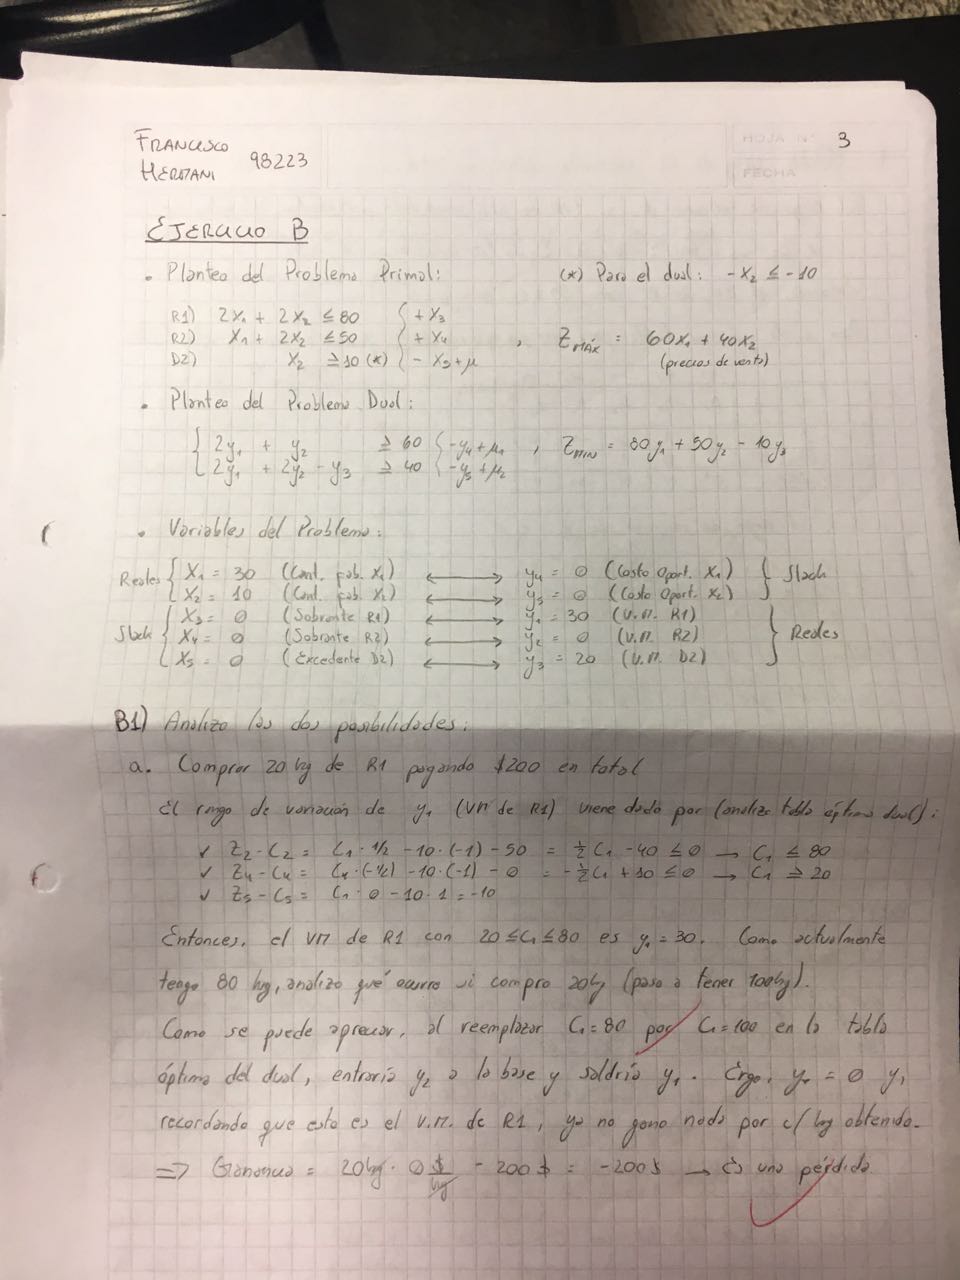 FRANCISCO 98223
HERTANI
HOJA Nº 3
FECHA
EJERCICIO B
• Planteo del Problema Primal: (*) Para el dual: -X₂ ≤ -10
R1) 2X₁ + 2X₂ ≤ 80 { + X₃
R2) X₁ + 2X₂ ≤ 50 { + X₄ , Z MÁX = 60X₁ + 40X₂
D2) X₂ ≥ 10 (*) { - X₅ + μ (precios de venta)
• Planteo del Problema Dual:
{ 2y₁ + y₂ ≥ 60 { -y₄ + μ₁ , Z MIN = 80y₁ + 50y₂ - 10y₃
2y₁ + 2y₂ - y₃ ≥ 40 { -y₅ + μ₂
• Variables del Problema:
Reales { X₁ = 30 (Cant. fab. X₁) ⟷ y₄ = 0 (Costo Oport. X₁) } Slack
X₂ = 10 (Cant. fab. X₂) ⟷ y₅ = 0 (Costo Oport. X₂)
Slack { X₃ = 0 (Sobrante R1) ⟷ y₁ = 30 (V.M. R1) } Reales
X₄ = 0 (Sobrante R2) ⟷ y₂ = 0 (V.M. R2)
X₅ = 0 (Excedente D2) ⟷ y₃ = 20 (V.M. D2)
B1) Analizo las dos posibilidades:
a. Comprar 20 kg de R1 pagando $200 en total
El rango de variación de y₁ (VM de R1) viene dado por (analizo tabla óptima dual):
✓ Z₂-C₂ = C₁·1/2 -10·(-1) -50 = ½C₁ -40 ≤ 0 → C₁ ≤ 80
✓ Z₄-C₄ = C₁·(-1/2) -10·(-1) -0 = -½C₁ +10 ≤ 0 → C₁ ≥ 20
✓ Z₅-C₅ = C₁·0 -10·1 = -10
Entonces, el VM de R1 con 20 ≤ C₁ ≤ 80 es y₁ = 30. Como actualmente
tengo 80 kg, analizo qué ocurre si compro 20kg (paso a tener 100kg).
Como se puede apreciar, al reemplazar C₁=80 por C₁=100 en la tabla
óptima del dual, entraría y₂ a la base y saldría y₁. Ergo, y₁ = 0 y,
recordando que este es el V.M. de R1, ya no gano nada por c/ kg obtenido.
⟹ Ganancia = 20kg · 0 $/kg - 200 $ = -200 $ → Es una pérdida